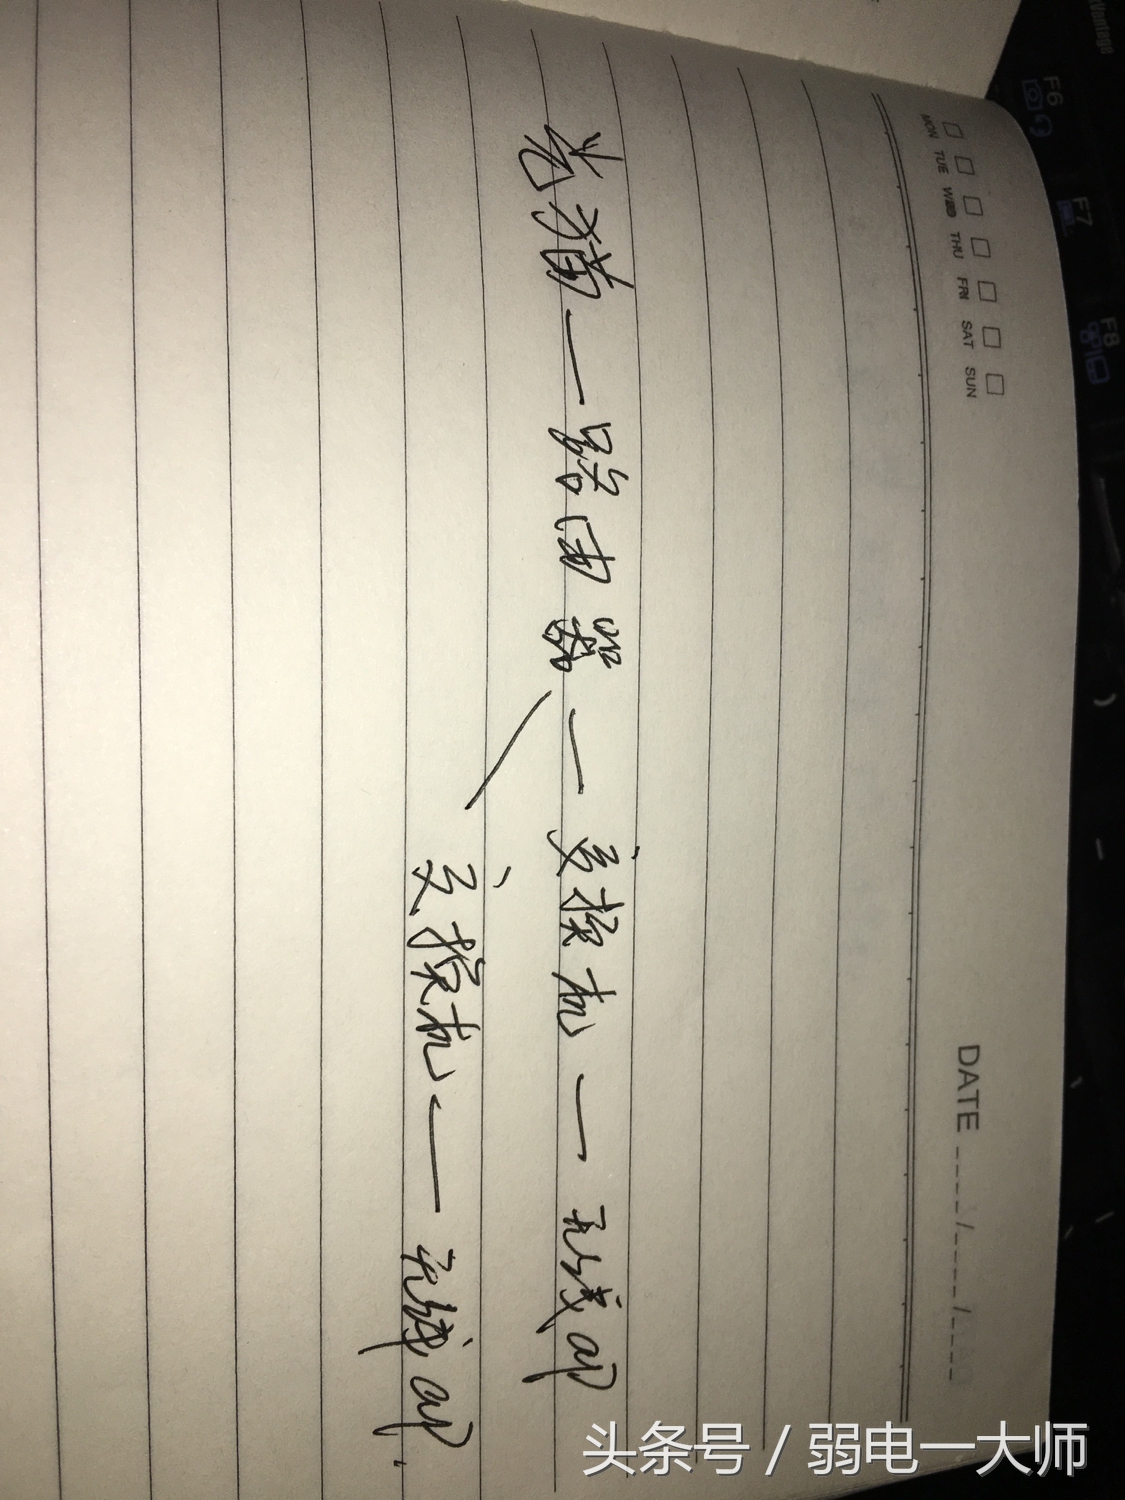 MON TUE WED THU FRI SAT SUN
DATE ____/____/____
光猫—路由器—交换机—无线ap
交换机—无线ap.
F6
F7
F8
头条号 / 弱电一大师